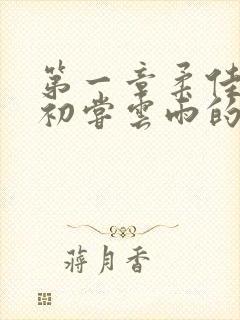 第一章柔佳
初尝雲雨的
蒋月香